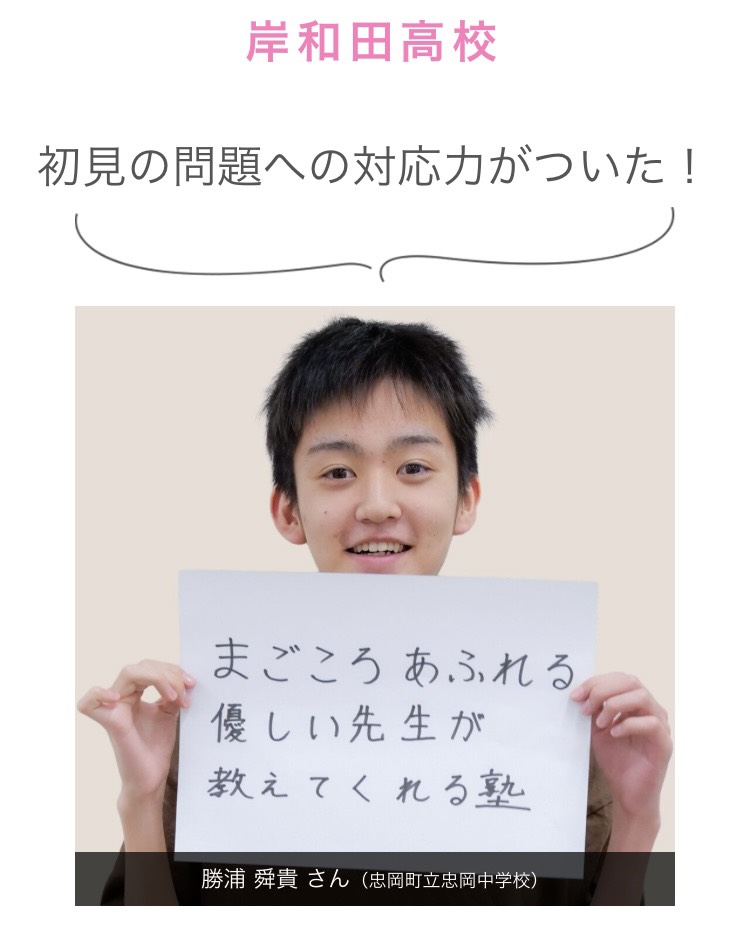 岸和田高校
初見の問題への対応力がついた！
まごころ あふれる
優しい先生が
教えてくれる塾
勝浦 舜貴 さん（忠岡町立忠岡中学校）